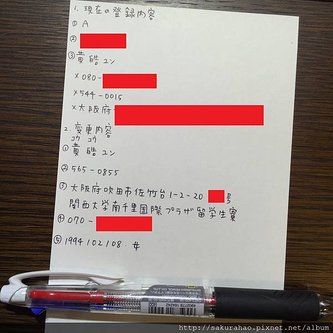 1. 現在の登録内容
① A
②
③ 黄 皓 ユン
× 080-
× 544-0015
× 大阪府
2. 変更内容
コウ コウ
① 黄 皓 ユン
② 565-0855
③ 大阪府吹田市佐竹台1-2-20 号
関西大学南千里国際プラザ留学生寮
④ 070-
⑤ 1994102108 #
http://sakurahao.pixnet.net/album